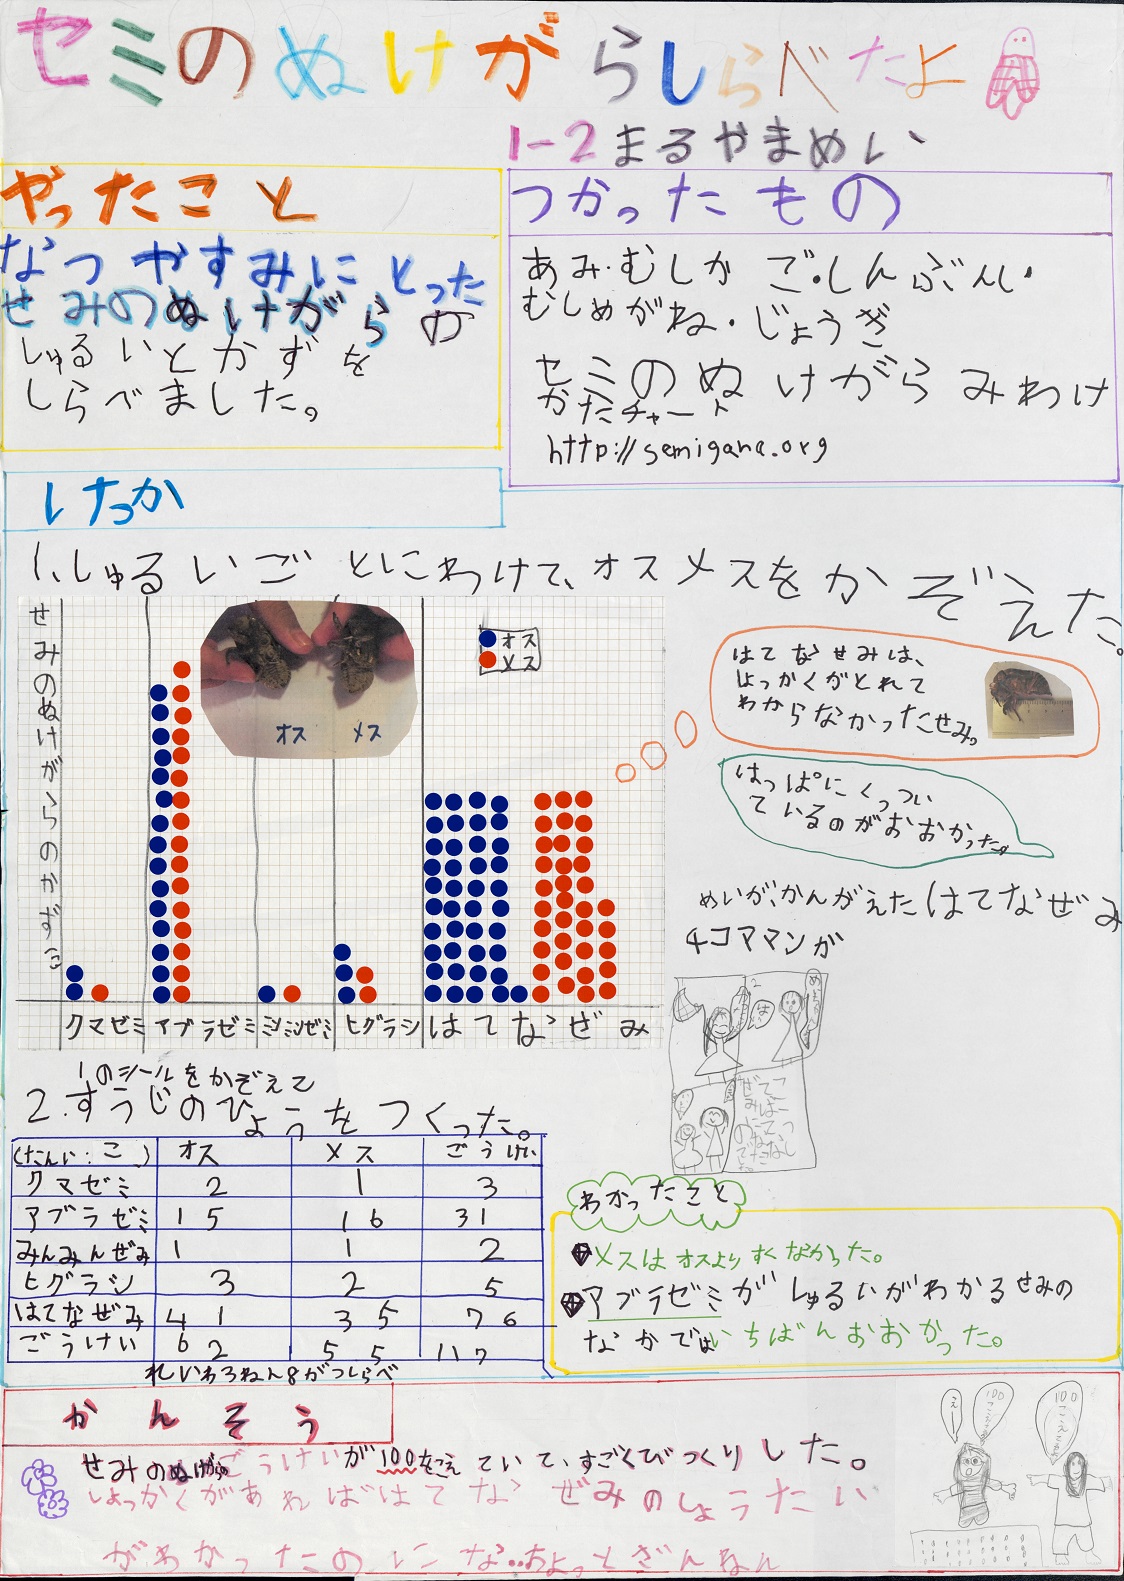 セミのぬけがらしらべたよ
1-2 まるやまめい
やったこと
なつやすみにとった
せみのぬけがらの
しゅるいとかずを
しらべました。
つかったもの
あみ・むしかご・しんぶんし・
むしめがね・じょうぎ
セミのぬけがらみわけ
かたチャート
http://semigara.org
けっか
1.しゅるいごとにわけて、オスメスをかぞえた。
せみのぬけがらのかず(こ)
オス
メス
オス メス
クマゼミ アブラゼミ ミンミンゼミ ヒグラシ はてなぜみ
はてなせみは、
しょっかくがとれて
わからなかったせみ。
はっぱにくっつい
ているのがおおかった。
めいが、かんがえたはてなぜみ
4コママンガ
2
は
1のシールをかぞえて
2.すうじのひょうをつくった。
(たんい:こ) オス メス ごうけい
クマゼミ 2 1 3
アブラゼミ 15 16 31
みんみんぜみ 1 1 2
ヒグラシ 3 2 5
はてなぜみ 41 35 76
ごうけい 62 55 117
れいわ3ねん8がつしらべ
わかったこと
メスはオスよりすくなかった。
アブラゼミがしゅるいがわかるせみの
なかではいちばんおおかった。
かんそう
せみのぬけがらごうけいが100をこえていて、すごくびっくりした。
しょっかくがあればはてなぜみのしょうたい
がわかったのにな…ちょっとざんねん
えー
100ここえ
100ここえ